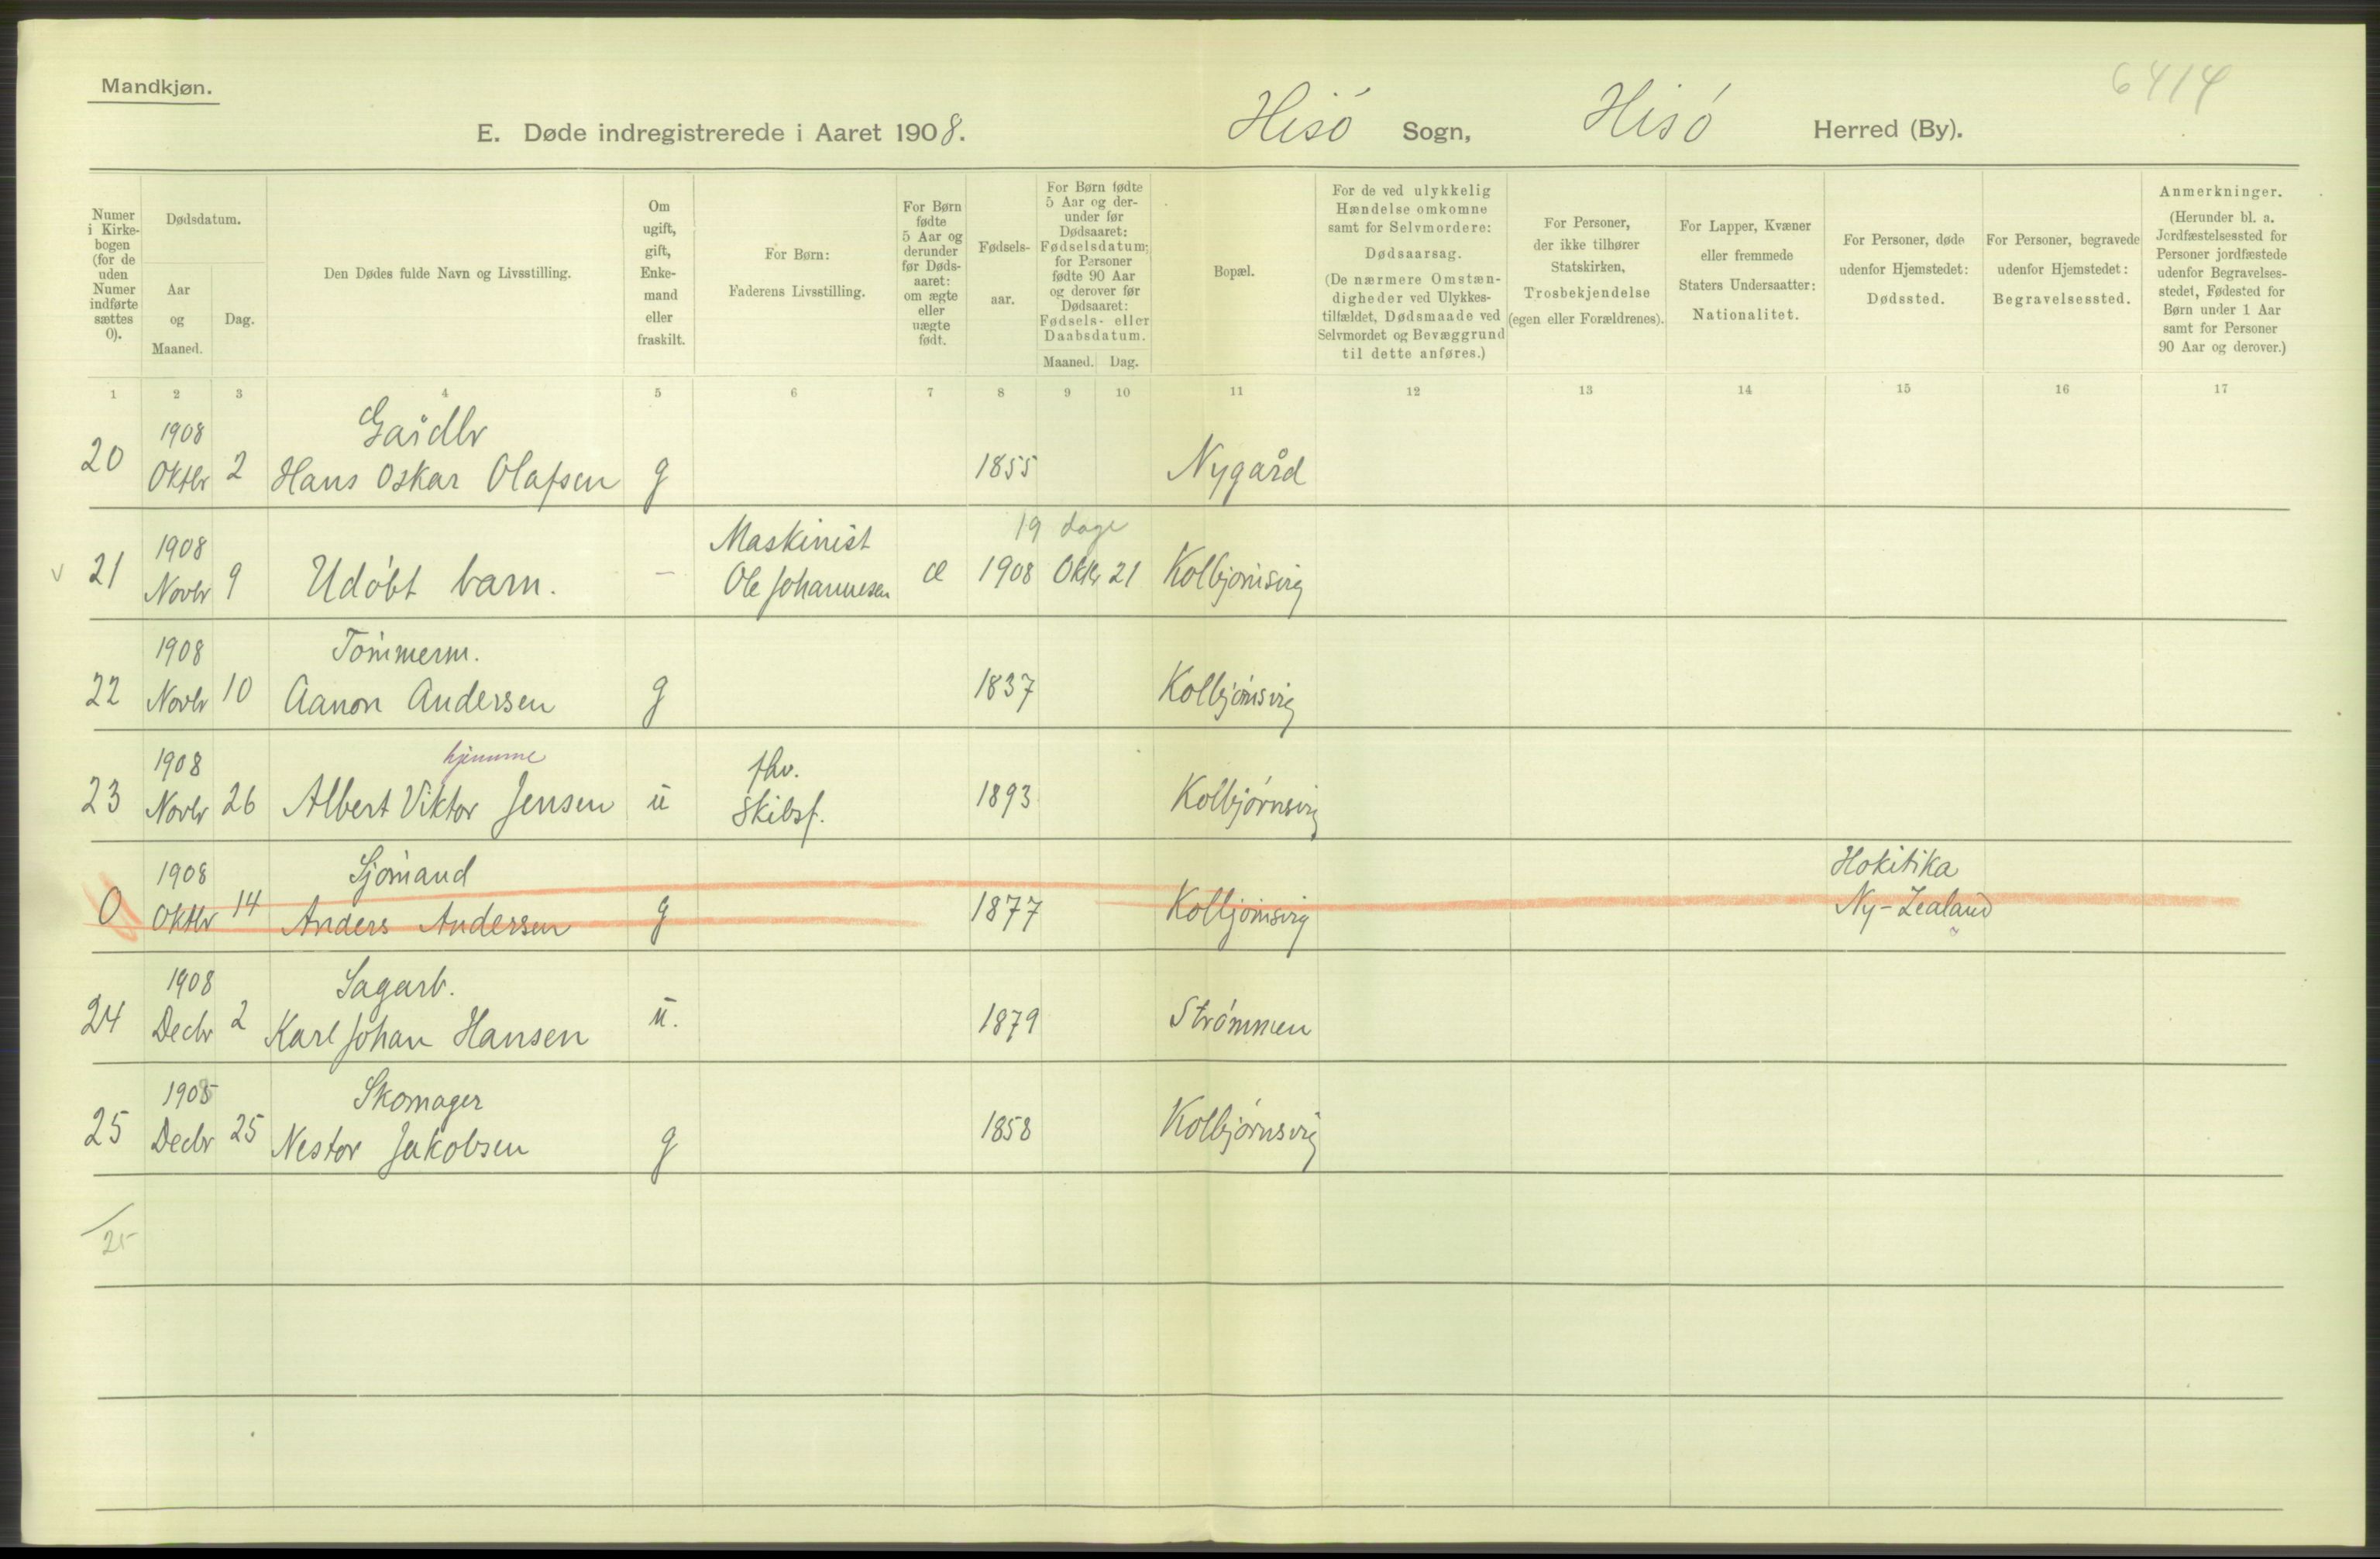 Mandkjøn.
6414
E. Døde indregistrerede i Aaret 1908. Hisö Sogn, Hisö Herred (By).
Numer i Kirke-bogen (for de uden Numer indførte sættes 0).
Dødsdatum.
Aar og Maaned.
Dag.
Den Dødes fulde Navn og Livsstilling.
Om ugift, gift, Enke-mand eller fraskilt.
For Børn: Faderens Livsstilling.
For Børn fødte 5 Aar og derunder før Døds-aaret: om ægte eller uægte født.
Fødsels-aar.
For Børn fødte 5 Aar og der-under før Dødsaaret: Fødselsdatum; for Personer fødte 90 Aar og derover før Dødsaaret: Fødsels- eller Daabsdatum.
Maaned. Dag.
Bopæl.
For de ved ulykkelig Hændelse omkomne samt for Selvmordere: Dødsaarsag. (De nærmere Omstæn-digheder ved Ulykkes-tilfældet, Dødsmaade ved Selvmordet og Bevæggrund til dette anføres.)
For Personer, der ikke tilhører Statskirken, Trosbekjendelse (egen eller Forældrenes).
For Lapper, Kvæner eller fremmede Staters Undersaatter: Nationalitet.
For Personer, døde udenfor Hjemstedet: Dødssted.
For Personer, begravede udenfor Hjemstedet: Begravelsessted.
Anmerkninger. (Herunder bl. a. Jordfæstelsessted for Personer jordfæstede udenfor Begravelses-stedet, Fødested for Børn under 1 Aar samt for Personer 90 Aar og derover.)
1 2 3 4 5 6 7 8 9 10 11 12 13 14 15 16 17
1908 Gårdbr
20 Oktbr 2 Hans Oskar Olafsen g 1855 Nygård
1908 Maskinist 19 dage
21 Novbr 9 Udöbt barn. – Ole Johannesen æ 1908 Oktbr 21 Kolbjörnsvig
1908 Tömmerm.
22 Novbr 10 Aanon Andersen g 1837 Kolbjörnsvig
1908 hjemme fhv.
23 Novbr 26 Albert Viktor Jensen u Skibsf. 1893 Kolbjörnsvig
1908 Sjömand Hokitika
0 Oktbr 14 Anders Andersen g 1877 Kolbjörnsvig Ny-Zealand
1908 Sagarb.
24 Decbr 2 Karl Johan Hansen u. 1879 Strömmen
1908 Skomager
25 Decbr 25 Nestor Jakobsen g 1858 Kolbjörnsvig
25